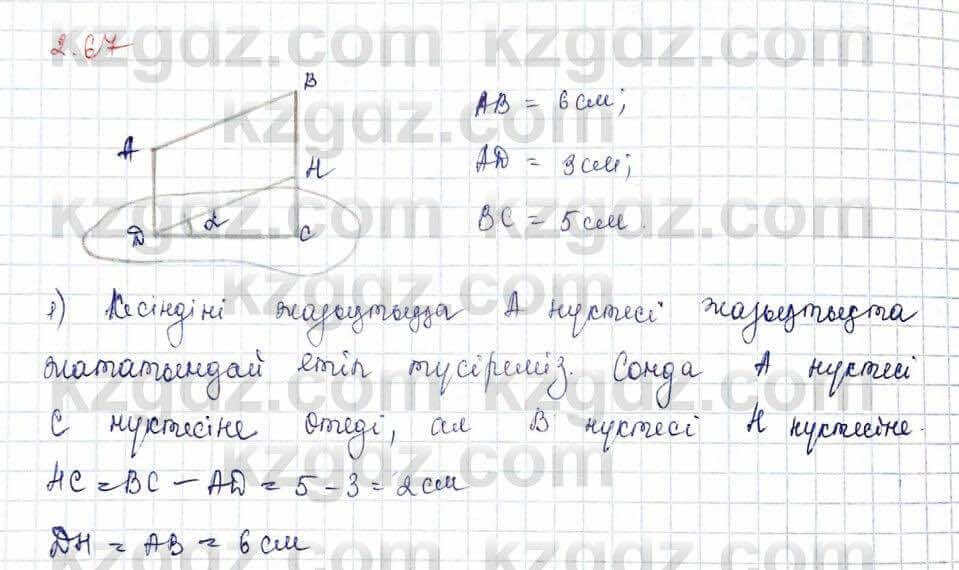 2.67
B
A
H
D
α
C
AB = 6 см;
AD = 3 см;
BC = 5 см.
1) Кесіндіні жазықтыққа A нүктесі жазықтықта
жататындай етіп түсіреміз. Сонда A нүктесі
C нүктесіне өтеді, ал B нүктесі H нүктесіне.
HC = BC − AD = 5 − 3 = 2 см
DH = AB = 6 см
kzgdz.com kzgdz.com
kzgdz.com
kzgdz.com kzgdz.com
kzgdz.com
kzgdz.com kzgdz.com
kzgdz.com
kzgdz.com kzgdz.com